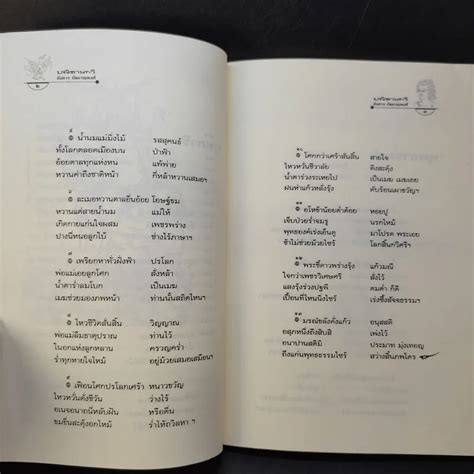 ปณิธานกวี
อังคาร กัลยาณพงศ์
๒
๏ น้ำนมแม่มิ่งไม้ รสสุคนธ์
ทั้งโลกตลอดเมืองบน ป่าฟ้า
อ้อยตาลทุกแห่งหน แพ้พ่าย
หวานค่าถึงชาติหน้า กี่หล้าหวานเสมอฯ
๏ ละเมอหวานตาลอื่นอ้อย โอษฐ์ขม
หวานแต่สายน้ำนม แม่ให้
เกิดกายแก่นใจผสม เพชรพร่าง
ปางนี้หนอลูกไบ้ ช่างไร้ภาษาฯ
๏ เพรียกหาทั่วฝั่งฟ้า ปรโลก
พ่อแม่เอยลูกโศก สั่งหล้า
น้ำตาร่ำลมโบก เป็นเมฆ
เมฆช่วยมองภาพหน้า ท่านนั้นสถิตไหนฯ
๏ ไหวชีวิตสั่นสิ้น วิญญาณ
พ่อแม่ลืมธาตุปราณ ท่านไว้
ในอกแห่งลูกหลาน ครวญคร่ำ
ร่ำทุกหายใจไหม้ อยู่ม้วยเสมอเสมือนฯ
๏ เพื่อนโศกปรโลกเศร้า หนาวขวัญ
ไหวหวั่นตั้งชีวัน ว่างไร้
อเนจอนาถนีหลับฝัน หรือตื่น
ขมขื่นสะดุ้งอกไหม้ ร่ำไห้ถวิลหา ฯ
ปณิธานกวี
อังคาร กัลยาณพงศ์
๓
๏ โศกกว่าเศร้าสันสิ้น สายใจ
ไหวหวั่นชีวาลัย ดิ่งสะดุ้ง
น้ำตาร่วงระเหยไป เป็นเมฆ เมฆเอย
ฝนห่าแก้วหลั่งรุ้ง ดับร้อนเผาขวัญฯ
๏ อโหข้าน้อยต่ำต้อย หอยปู
เจ็บป่วยร่ำงมงู นรกไหม้
พุทธองค์เร่งเอ็นดู มาโปรด พระเอย
ข้าไม่ช่วยม้วยไซร้ โลกสิ้นกวีศรีฯ
๏ พระชี้ดาวพร่างรุ้ง แก้วมณี
ใจกว่าเพชรวิเศษศรี สั่งไว้
แสงรุ้งร่วงปฐพี คมดำ ก็ดี
เปื่อนที่ไหนนิ่งไซร้ เร่งซึ้งสัจธรรมฯ
๏ มรณัขลังคั่งแก้ว อนุสสติ
อสุภหนึ่งถึงสิบสิ เพ่งไว้
อนาปานสติมิ ประมาท มุ่งเทอญ
ถึงแก่นพุทธธรรมไซร้ สว่างสิ้นภพไตร